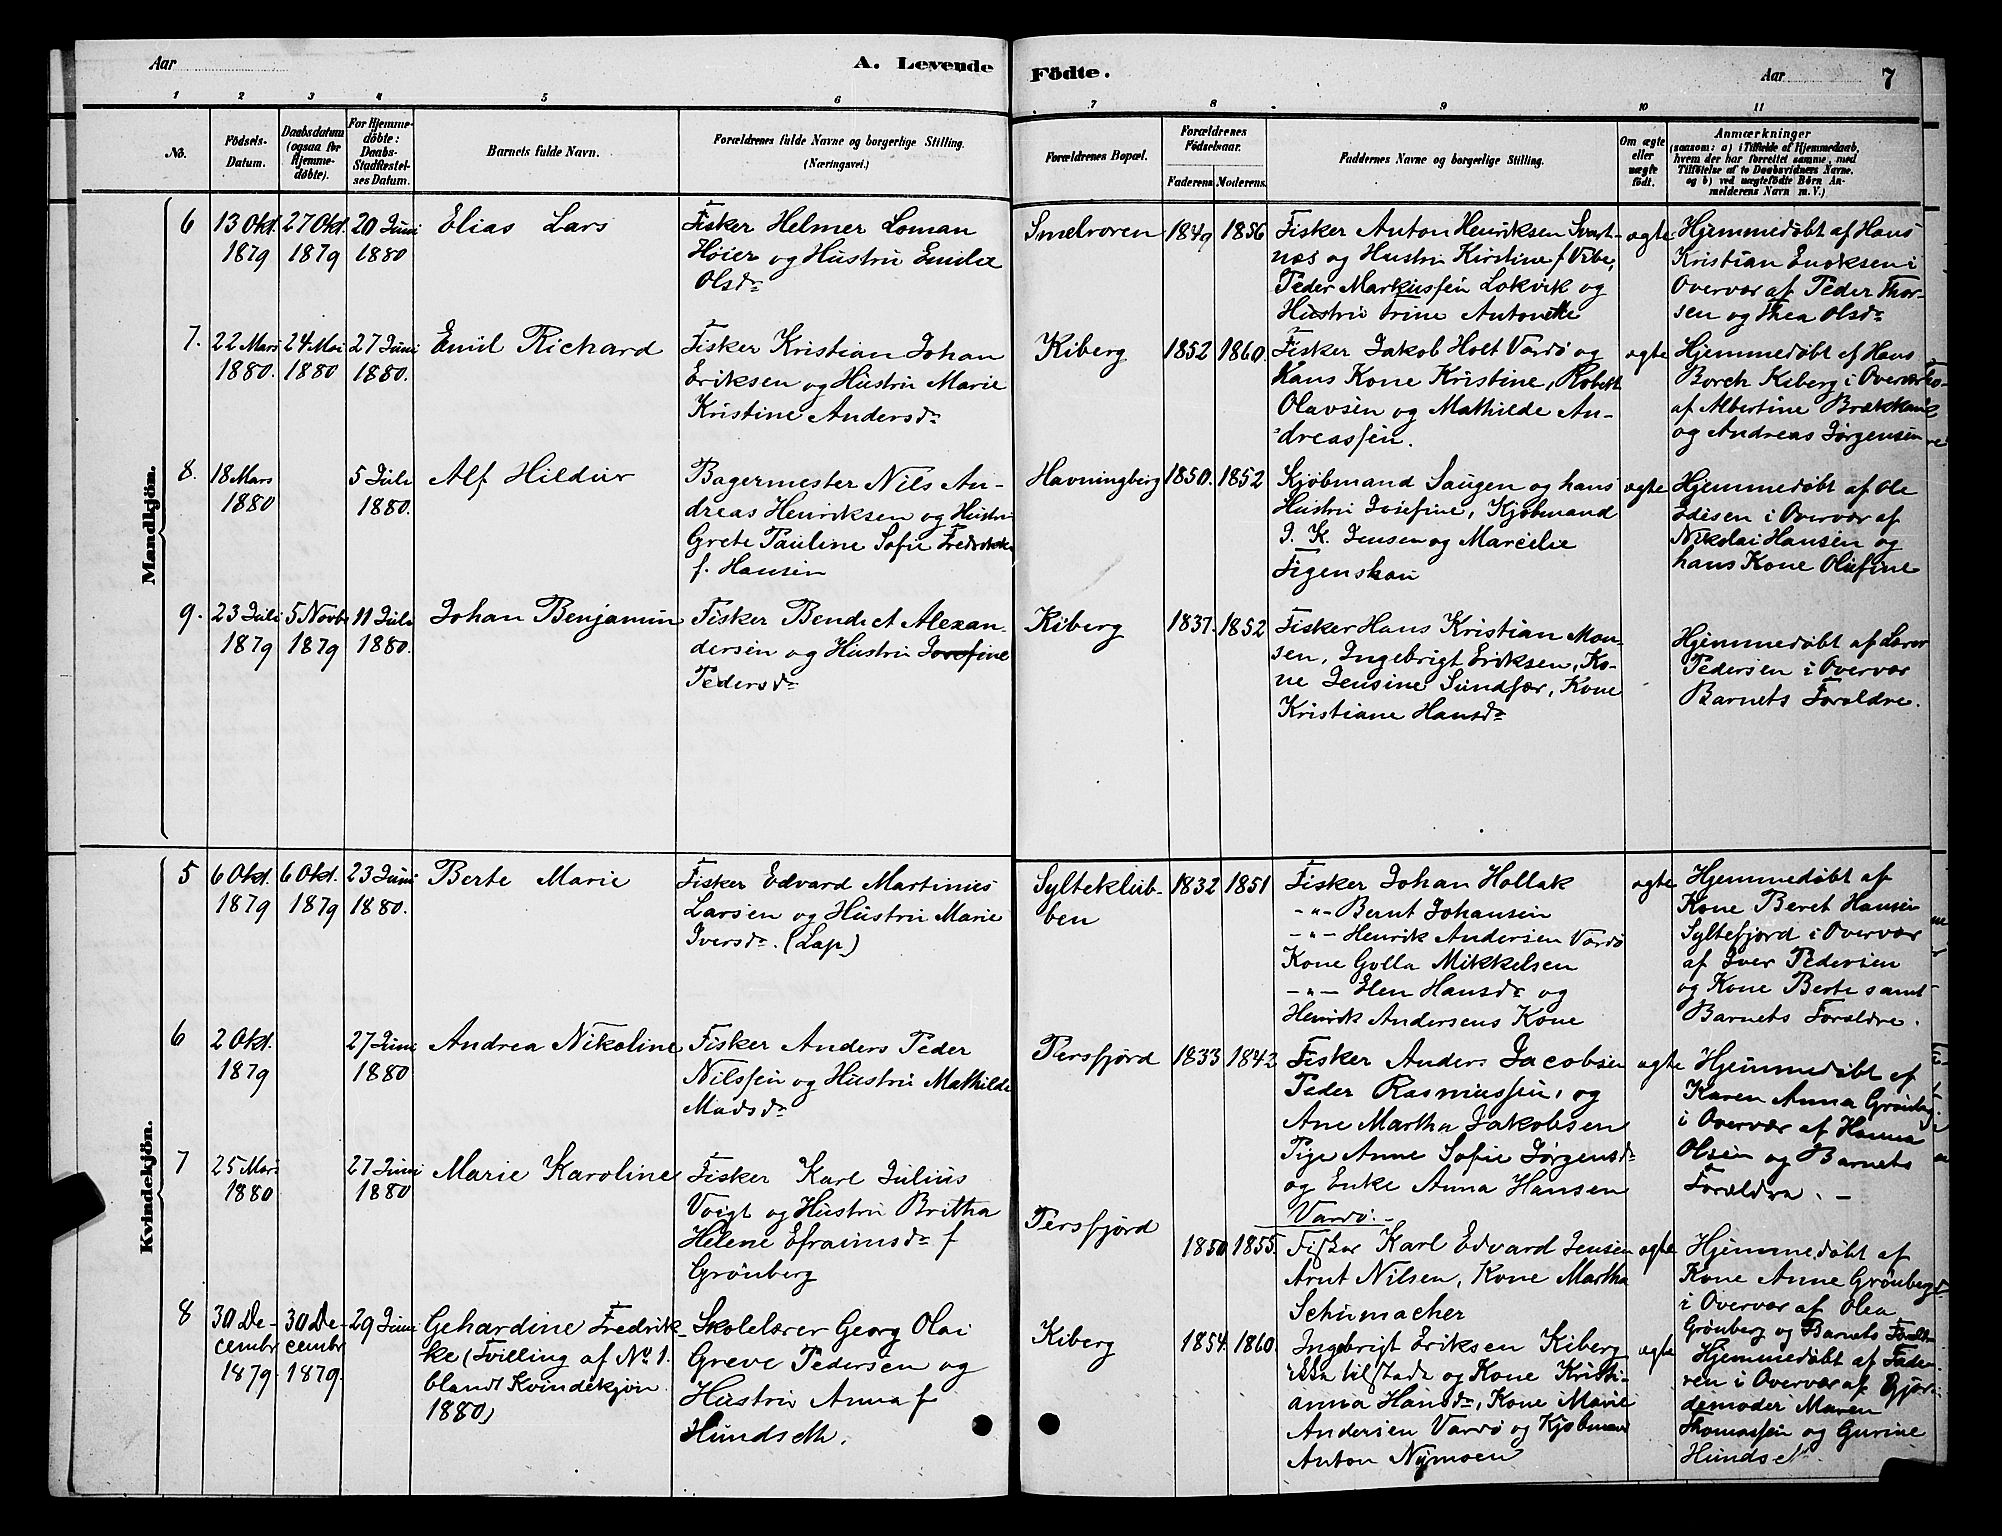 Aar
A. Levende
Födte.
Aar
7
1
2
3
4
5
6
7
8
9
10
11
No.
Födsels-
Datum.
Daabsdatum
(ogsaa for
Hjemme-
döbte).
For Hjemme-
döbte:
Daabs-
Stadfæstel-
ses Datum.
Barnets fulde Navn.
Forældrenes fulde Navne og borgerlige Stilling.
(Næringsvei.)
Forældrenes Bopæl.
Forældrenes
Födselsaar.
Faderens.
Moderens.
Faddernes Navne og borgerlige Stilling.
Om ægte
eller
uægte
födt.
Anmærkninger
(saasom: a) i Tilfælde af Hjemmedaab,
hvem der har forrettet samme, med
Tilföielse af to Daabsvidners Navne,
og b) ved uægtefödte Börn An-
melderens Navn m. V.)
Mandkjön.
6
13 Okt.
1879
27 Okt.
1879
20 Juni
1880
Elias Lars
Fisker Helmer Loman
Høier og Hustru Emilie
Olsdr
Smelroren
1849
1856
Fisker Anton Henriksen Svart-
næs og Hustru Kirstine f Vibe,
Peder Markussen Lokvik og
Hustru Trine Antonette
ægte
Hjemmedøbt af Hans
Kristian Eriksen i
Overvær af Peder Thor-
sen og Thea Olsdr
7.
22 Mars
1880.
24 Mai
1880
27 Juni
1880.
Emil Richard
Fisker Kristian Johan
Eriksen og Hustru Marie
Kristine Andersdr
Kiberg
1852
1860.
Fisker Jakob Holt Vardø og
Hans Kone Kristine, Robert
Olavsen og Mathilde An-
dreassen.
ægte
Hjemmedøbt af Hans
Borch Kiberg i Overvær
af Albertine Brækkan
og Andreas Jørgensen
8.
18 Mars
1880
5 Juli
1880.
Alf Hildur
Bagermester Nils An-
dreas Henriksen og Hustru
Grete Pauline Sofie Fredrikke
f. Hansen
Havningberg
1850.
1852
Kjøbmand Saugen og hans
Hustru Josefine, Kjøbmand
J. K. Jensen og Marcelie
Figenskau
ægte
Hjemmedøbt af Ole
Edisen i Overvær af
Nikolai Hansen og
hans Kone Olufine
9.
23 Juli
1879
5 Novbr
1879
11 Juli
1880.
Johan Benjamin
Fisker Bendict Alexan-
dersen og Hustru Josefine
Pedersdr
Kiberg
1837.
1852
Fisker Hans Kristian Mon-
sen, Ingebrigt Eriksen, Ko-
ne Jensine Sundfær, Kone
Kristiane Hansdr
Hjemmedøbt af Lærer
Pedersen i Overvær
Barnets Forældre.
Kvindekjön.
5
6 Okt.
1879
6 Okt.
1879
23 Juni
1880.
Berte Marie
Fisker Edvard Martinus
Larsen og Hustru Marie
Iversdr. (Lap)
Sylteklub-
ben
1832
1851
Fisker Johan Hollak
-"- Bernt Johansen
-"- Henrik Andersen Vardø
Kone Golla Mikkelsen
-"- Elen Hansdr og
Henrik Andersens Kone
ægte
Hjemmedøbt af
Kone Beret Hansen
Syltefjord i Overvær
af Iver Pedersen
og Kone Berte samt
Barnets Forældre.
6
2 Okt.
1879
27 Juni
1880
Andrea Nikoline
Fisker Anders Peder
Nilssen og Hustru Mathilde
Madsdr
Persfjord
1833
1842
Fisker Anders Jacobsen
Peder Rasmussen, og
Ane Martha Jakobsen
Pige Anne Sofie Jørgensdr
og Enke Anna Hansen
Vardø.
ægte
Hjemmedøbt af
Karen Anna Grønberg
i Overvær af Hanna
Olsen og Barnets
Forældre. -
7
25 Mars
1880
27 Juni
1880
Marie Karoline
Fisker Karl Julius
Voigt og Hustru Britha
Helene Efraimsdr f
Grønberg
Persfjord
1850
1855.
Fisker Karl Edvard Jensen
Arnt Nilsen, Kone Martha
Schumacher
ægte
Hjemmedøbt af
Kone Anne Grønberg
i Overvær af Olea
Grønberg og Barnets Forældre
8
30 De-
cembr
1879
30 De-
cembr
1879.
29 Juni
Gehardine Fredrik-
ke (Tvilling af No 1.
blandt Kvindekjøn
1880)
Skolelærer Georg Olai
Greve Pedersen og
Hustru Anna f
Hundseth.
Kiberg
1854.
1860.
Ingebrigt Eriksen Kiberg
ikke tilstede og Kone Kristi-
anna Hansdr, Kone Marie
Andersen Vardø og Kjøbmand
Anton Nymoen
ægte
Hjemmedøbt af Fade-
ren i Overvær af Gjor-
demoder Maren
Thomassen og Gurine
Hundseth